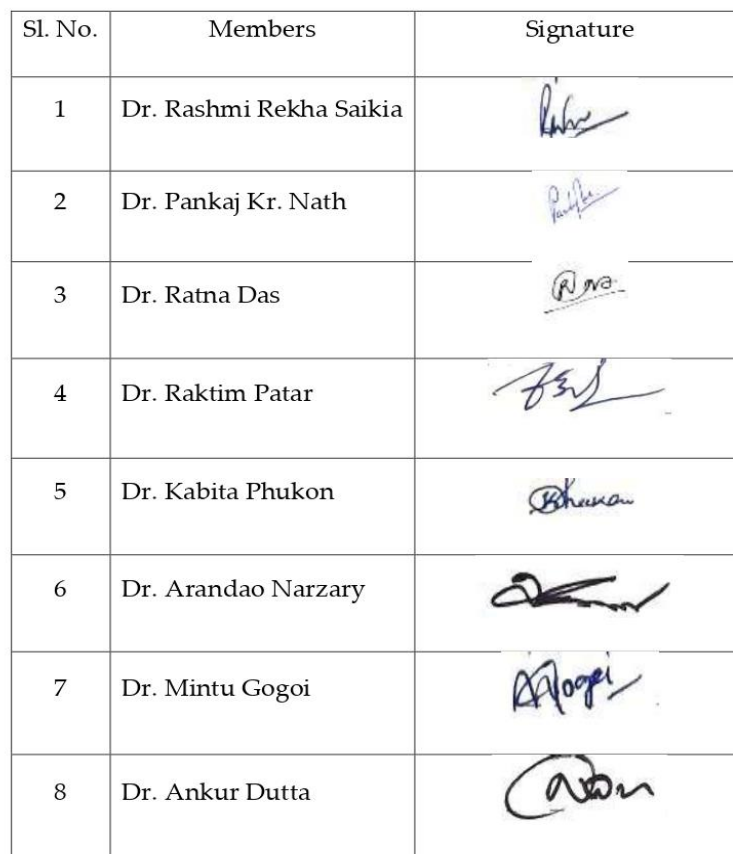 Sl. No. Members Signature
1 Dr. Rashmi Rekha Saikia
2 Dr. Pankaj Kr. Nath
3 Dr. Ratna Das
4 Dr. Raktim Patar
5 Dr. Kabita Phukon
6 Dr. Arandao Narzary
7 Dr. Mintu Gogoi
8 Dr. Ankur Dutta